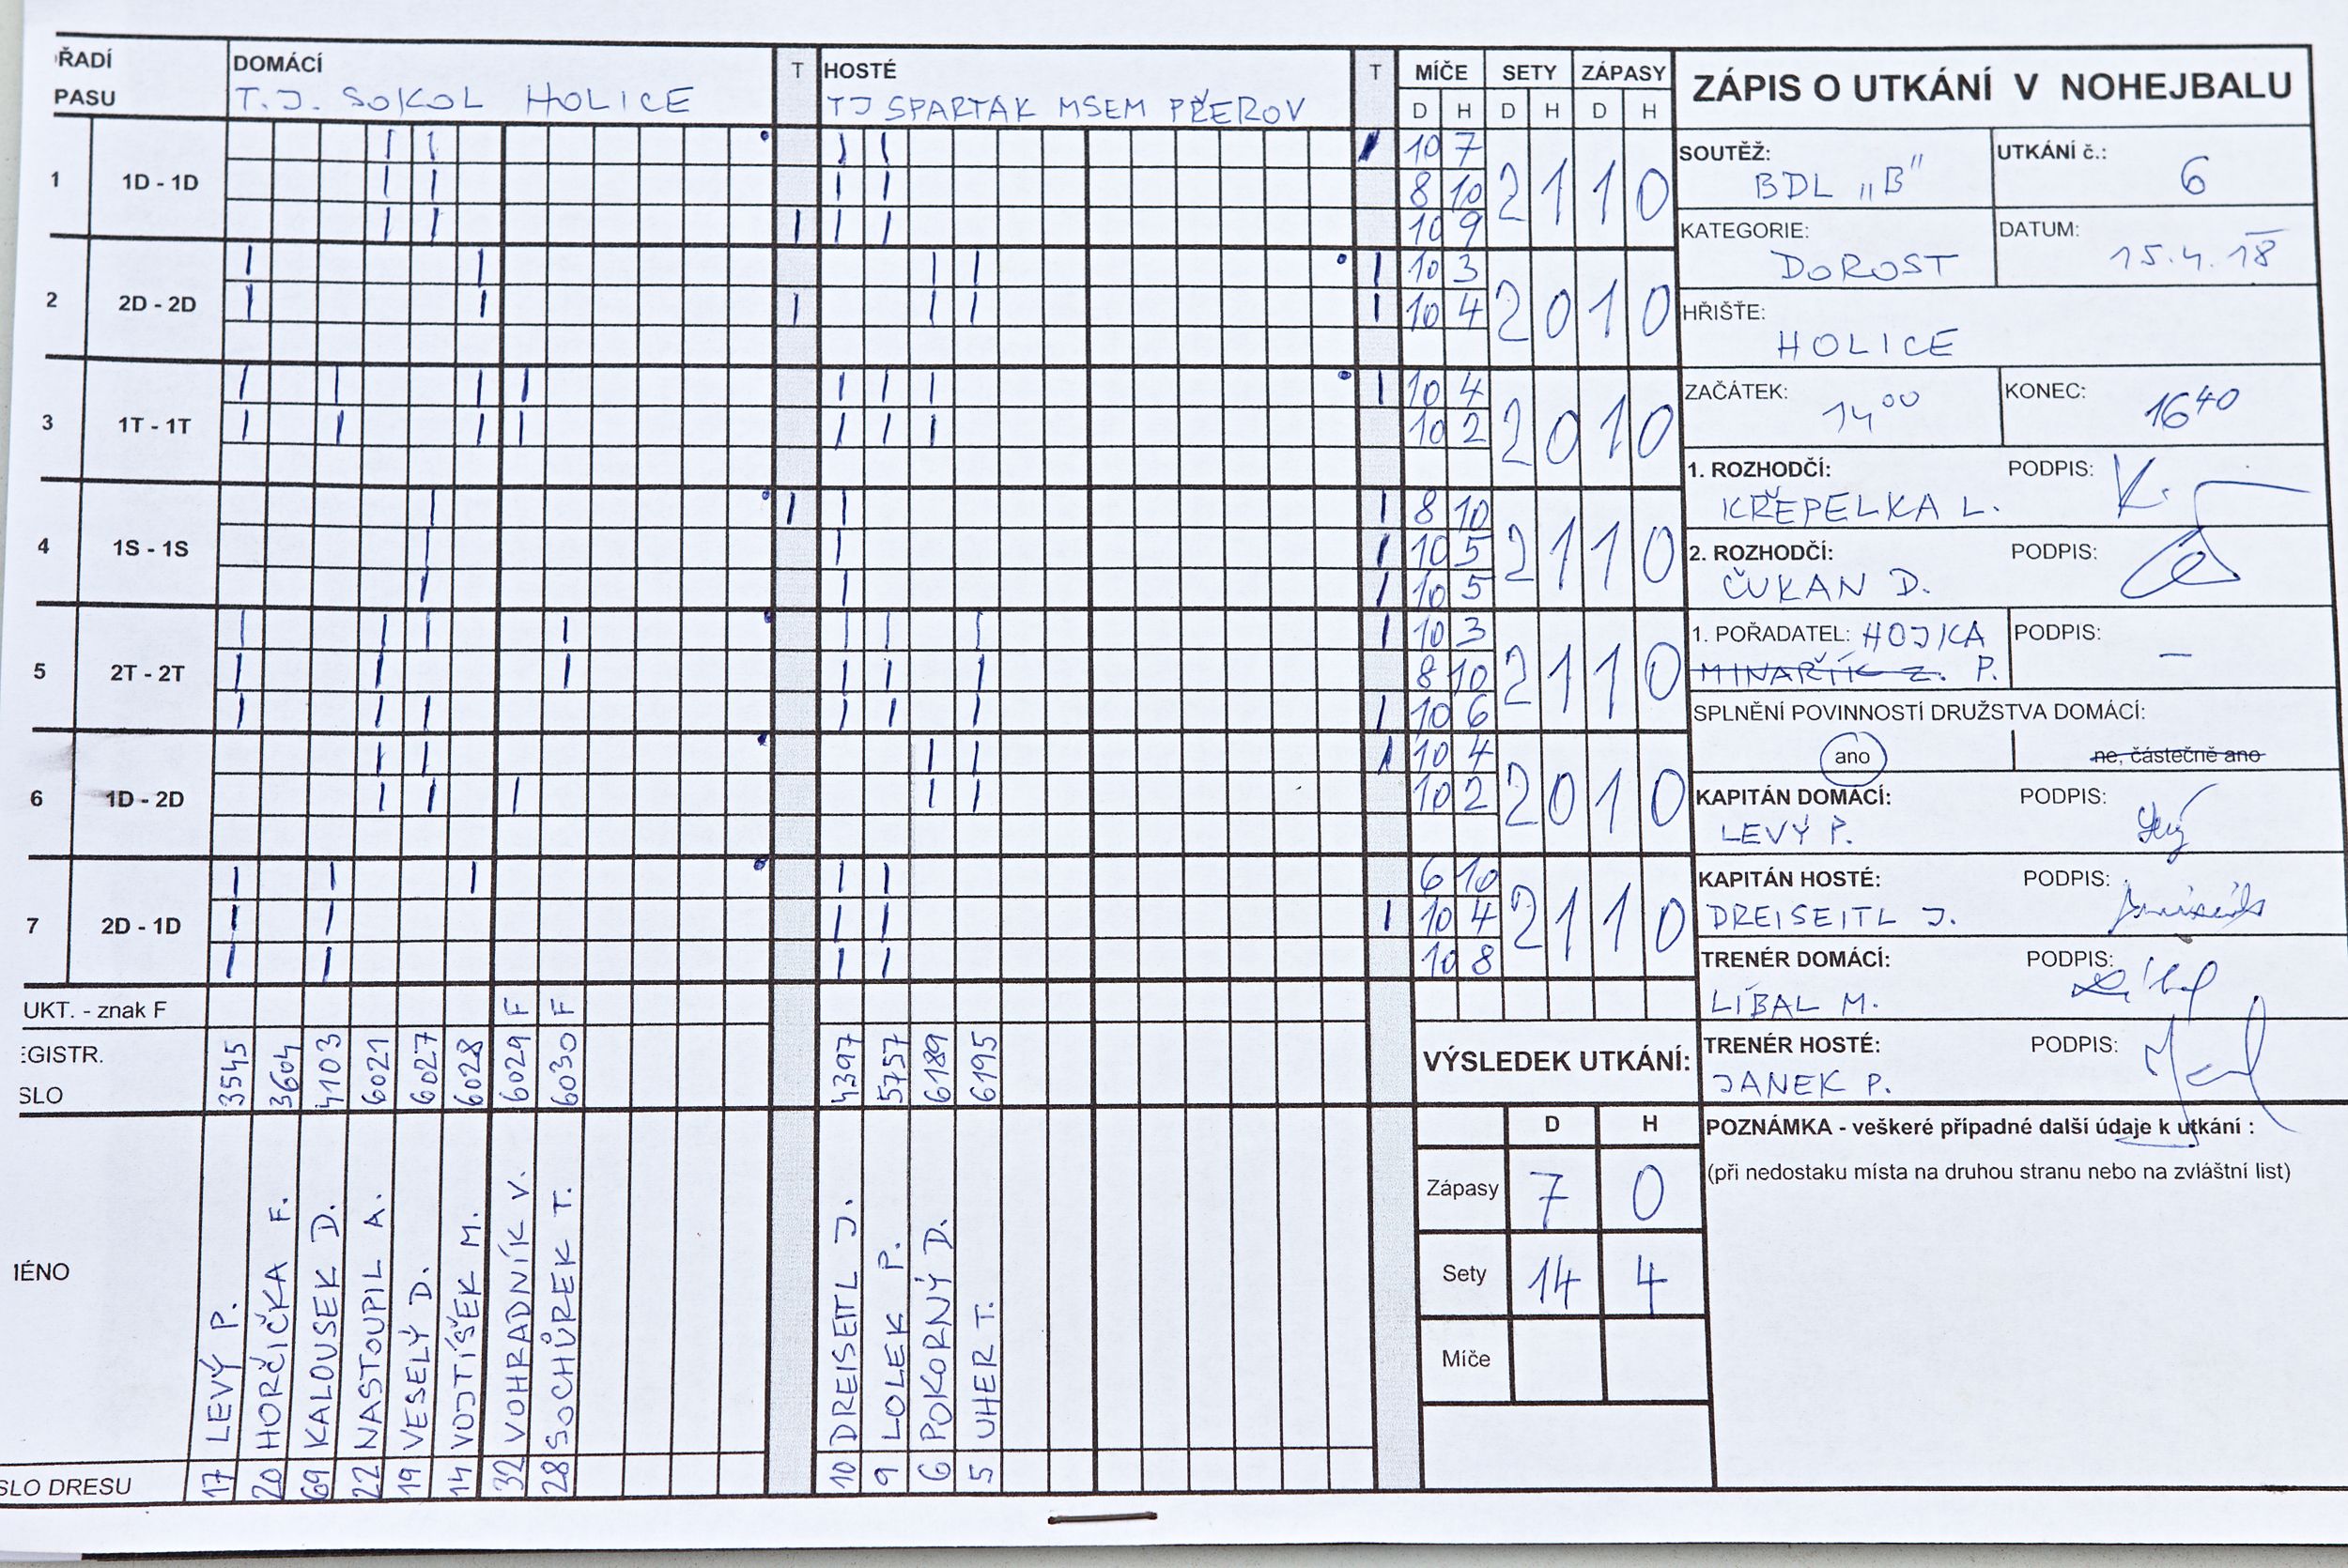 ŘADÍ DOMÁCÍ T HOSTÉ T MÍČE SETY ZÁPASY
PASU T.J. SOKOL HOLICE TJ SPARTAK MSEM PŘEROV D H D H D H
1 1D - 1D 10 7 2 1 1 0
8 10
10 9
2 2D - 2D 10 3 2 0 1 0
10 4
3 1T - 1T 10 4 2 0 1 0
10 2
4 1S - 1S 8 10 2 1 1 0
10 5
10 5
5 2T - 2T 10 3 2 1 1 0
8 10
10 6
6 1D - 2D 10 4 2 0 1 0
10 2
7 2D - 1D 6 10 2 1 1 0
10 4
10 8
UKT. - znak F F F
EGISTR.
SLO
3545 3604 4103 6021 6027 6028 6029 6030 4397 5757 6189 6195
JMÉNO
LEVÝ P.
HORČIČKA F.
KALOUSEK D.
NASTOUPIL A.
VESELÝ D.
VOJTÍŠEK M.
VOHRADNÍK V.
SOCHŮREK T.
DREISEITL J.
LOLEK P.
POKORNÝ D.
UHER T.
SLO DRESU 17 20 69 22 19 14 32 28 10 9 6 5
VÝSLEDEK UTKÁNÍ:
D H
Zápasy 7 0
Sety 14 4
Míče
ZÁPIS O UTKÁNÍ V NOHEJBALU
SOUTĚŽ: UTKÁNÍ č.:
BDL „B" 6
KATEGORIE: DATUM:
DOROST 15.4.18
HŘIŠTE:
HOLICE
ZAČÁTEK: 14 00 KONEC: 16 40
1. ROZHODČÍ: PODPIS:
KŘEPELKA L.
2. ROZHODČÍ: PODPIS:
ČUKAN D.
1. POŘADATEL: HOJKA PODPIS:
MINAŘÍK Z. P. –
SPLNĚNÍ POVINNOSTÍ DRUŽSTVA DOMÁCÍ:
ano ne, částečně ano
KAPITÁN DOMÁCÍ: PODPIS:
LEVÝ P.
KAPITÁN HOSTÉ: PODPIS:
DREISEITL J.
TRENÉR DOMÁCÍ: PODPIS:
LÍBAL M.
TRENÉR HOSTÉ: PODPIS:
JANEK P.
POZNÁMKA - veškeré případné další údaje k utkání :
(při nedostaku místa na druhou stranu nebo na zvláštní list)